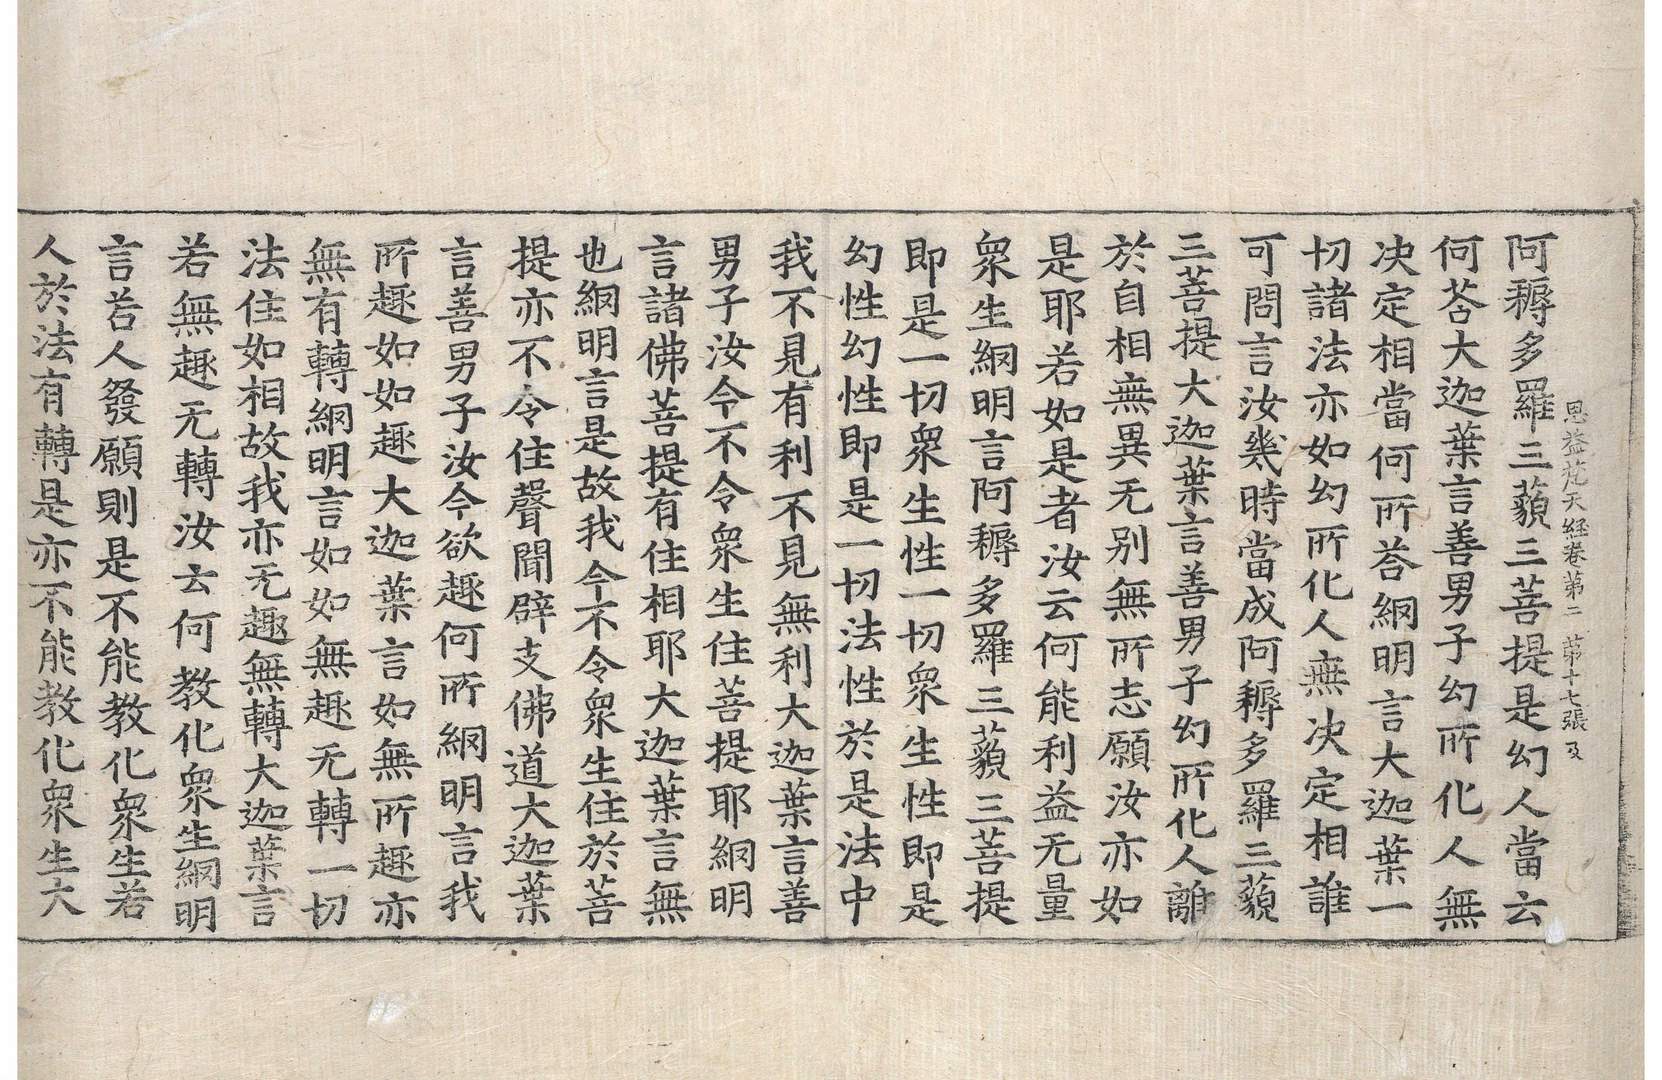 思益梵天経卷第二　第十七張　及
阿耨多羅三藐三菩提是幻人當云
何荅大迦葉言善男子幻所化人無
决定相當何所荅網明言大迦葉一
切諸法亦如幻所化人無决定相誰
可問言汝幾時當成阿耨多羅三藐
三菩提大迦葉言善男子幻所化人離
於自相無異无别無所志願汝亦如
是耶若如是者汝云何能利益无量
衆生網明言阿耨多羅三藐三菩提
即是一切衆生性一切衆生性即是
幻性幻性即是一切法性於是法中
我不見有利不見無利大迦葉言善
男子汝今不令衆生住菩提耶網明
言諸佛菩提有住相耶大迦葉言無
也網明言是故我今不令衆生住於菩
提亦不令住聲聞辟支佛道大迦葉
言善男子汝今欲趣何所網明言我
所趣如如趣大迦葉言如無所趣亦
無有轉網明言如如無趣无轉一切
法住如相故我亦无趣無轉大迦葉言
若無趣无轉汝云何教化衆生網明
言若人發願則是不能教化衆生若
人於法有轉是亦不能教化衆生大